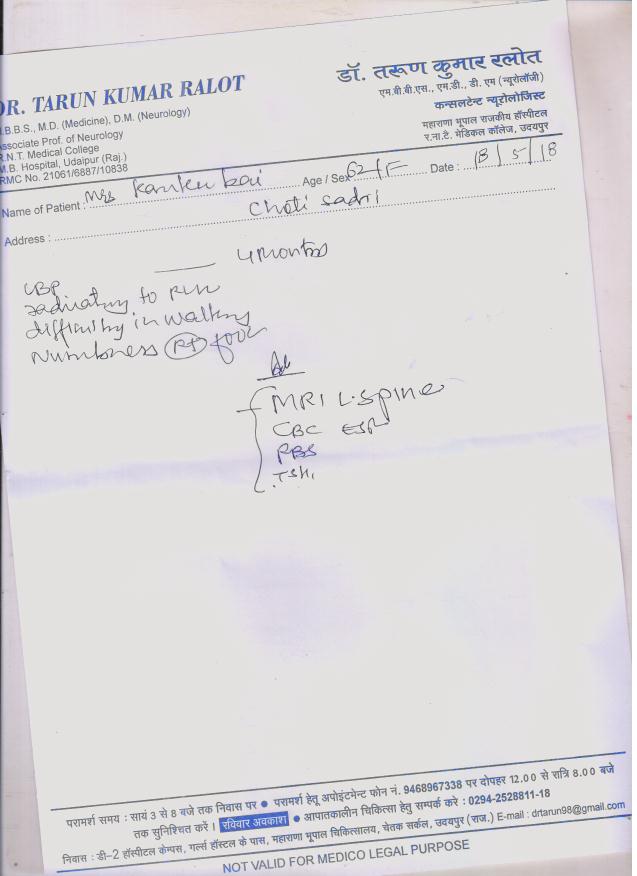 DR. TARUN KUMAR RALOT
M.B.B.S., M.D. (Medicine), D.M. (Neurology)
Associate Prof. of Neurology
R.N.T. Medical College
M.B. Hospital, Udaipur (Raj.)
RMC No. 21061/6887/10838
डॉ. तरूण कुमार रलोत
एम.बी.बी.एस., एम.डी., डी. एम (न्यूरोलॉजी)
कन्सलटेन्ट न्यूरोलोजिस्ट
महाराणा भूपाल राजकीय हॉस्पीटल
र.ना.टै. मेडिकल कॉलेज, उदयपुर
Name of Patient : Mrs Kanku bai Age / Sex 62/F Date : 18/5/18
Address : Choti Sadri
4 months
LBP
radiating to
difficulty in walking
Numbness Rt foot
Ad
MRI L-Spine
CBC ESR
RBS
TSH
परामर्श समय : सायं 3 से 8 बजे तक निवास पर ● परामर्श हेतू अपोइंटमेन्ट फोन नं. 9468967338 पर दोपहर 12.00 से रात्रि 8.00 बजे
तक सुनिश्चित करें। रविवार अवकाश ● आपातकालीन चिकित्सा हेतु सम्पर्क करे : 0294-2528811-18
निवास : डी-2 हॉस्पीटल केम्पस, गर्ल्स हॉस्टल के पास, महाराणा भूपाल चिकित्सालय, चेतक सर्कल, उदयपुर (राज.) E-mail : drtarun98@gmail.com
NOT VALID FOR MEDICO LEGAL PURPOSE